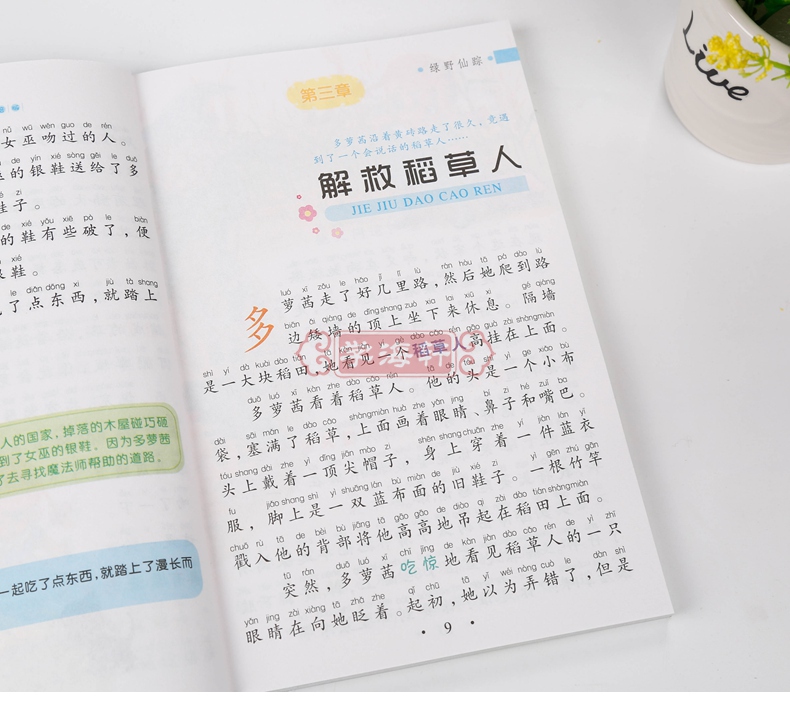 nǚ wū wěn guo de rén
女巫吻过的人。
de yín xié sòng gěi le duō
的银鞋送给了多
zi
鞋子。
de xié yǒu xiē pò le biàn
的鞋有些破了，便
银鞋。
le diǎn dōng xi jiù tà shang
了点东西，就踏上
人的国家，掉落的木屋碰巧砸
到了女巫的银鞋。因为多萝茜
了去寻找魔法师帮助的道路。
一起吃了点东西，就踏上了漫长而
绿野仙踪
第三章
多萝茜沿着黄砖路走了很久，竟遇
到了一个会说话的稻草人……
解救稻草人
JIE JIU DAO CAO REN
duō luó xī zǒu le hǎo jǐ lǐ lù rán hòu tā pá dào lù
多萝茜走了好几里路，然后她爬到路
biān ǎi qiáng de dǐng shang zuò xia lai xiū xi gé qiáng
边矮墙的顶上坐下来休息。隔墙
shì yí dà kuài dào tián tā kàn jiàn yí gè dào cǎo rén gāo guà zài shàngmiàn
是一大块稻田，她看见一个稻草人高挂在上面。
duō luó xī kàn zhe dào cǎo rén tā de tóu shì yí gè xiǎo bù
多萝茜看着稻草人。他的头是一个小布
dài sāi mǎn le dào cǎo shàngmiàn huà zhe yǎn jing bí zi hé zuǐ ba
袋，塞满了稻草，上面画着眼睛、鼻子和嘴巴。
tóu shang dài zhe yì dǐng jiān mào zi shēn shang chuān zhe yí jiàn lán yī
头上戴着一顶尖帽子，身上穿着一件蓝衣
fu jiǎo shang shì yì shuāng lán bù miàn de jiù xié zi yì gēn zhú gān
服，脚上是一双蓝布面的旧鞋子。一根竹竿
chuō rù tā de bèi bù jiāng tā gāo gāo de diào qǐ zài dào tián shàngmiàn
戳入他的背部将他高高地吊起在稻田上面。
tū rán duō luó xī chī jīng de kàn jiàn dào cǎo rén de yì zhī
突然，多萝茜吃惊地看见稻草人的一只
yǎn jing zài xiàng tā zhǎ zhe qǐ chū tā yǐ wéi nòng cuò le dàn shì
眼睛在向她眨着。起初，她以为弄错了，但是
·9·
Live